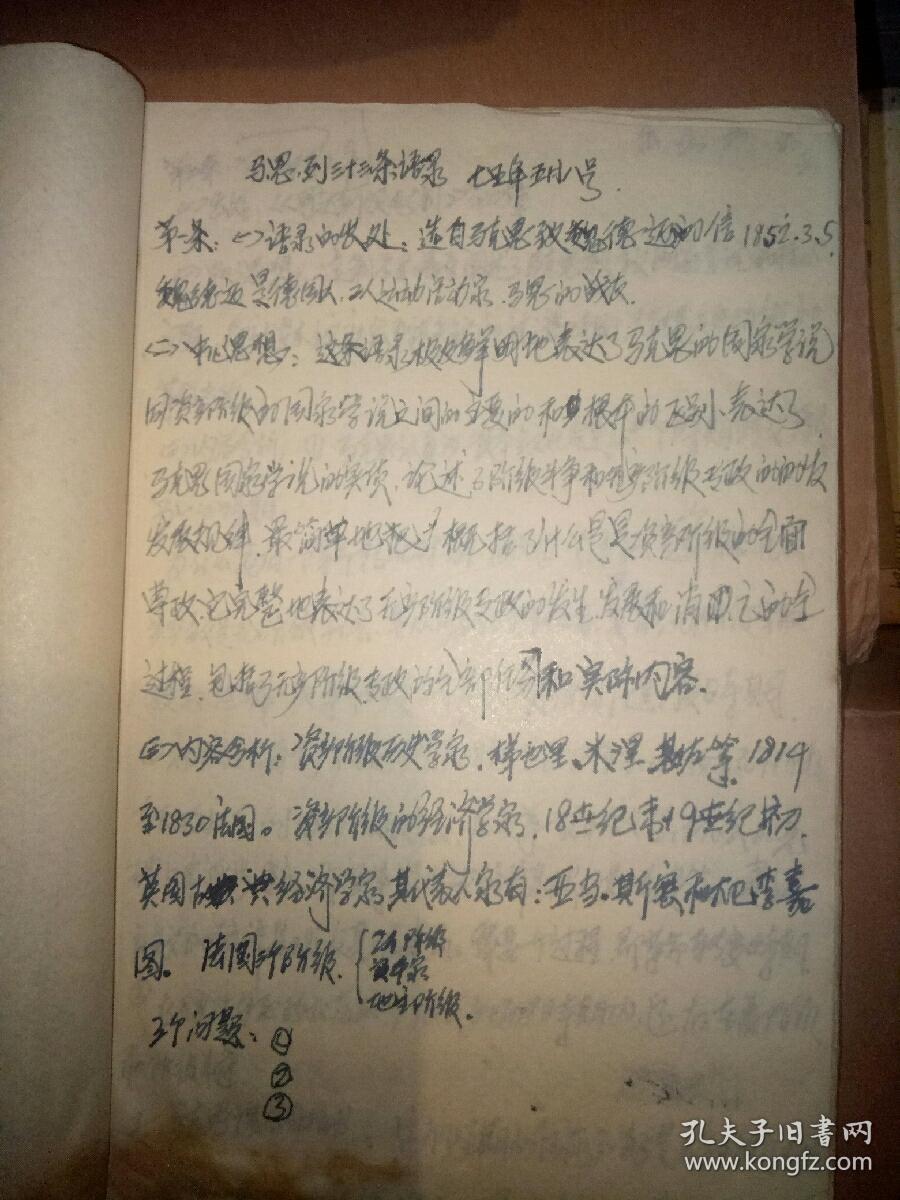 马恩列三十三条语录 七五年五月八号.
第一条:(一)语录的出处:选自马克思致魏德迈的信1852.3.5.
魏德迈是德国人,工人运动活动家,马恩的战友.
(二)中心思想:这条语录极其鲜明地表达了马克思的国家学说
同资产阶级的国家学说之间的主要的和根本的区别,表达了
马克思国家学说的实质,论述了阶级斗争和无产阶级专政的
发展规律,最简单地概括了什么是是资产阶级的全面
专政,它完整地表达了无产阶级专政的发生、发展和消亡的全
过程,包括了无产阶级专政的全部任务和实际内容.
(三)内容分析:资产阶级历史学家,梯也里、米涅、基佐等,1814
至1830法国。资产阶级的经济学家,18世纪末19世纪初,
英国古典经济学家,其代表人家有:亚当。斯密和大卫李嘉
图。法国三个阶级. 工人阶级
资本家
地主阶级.
三个问题:①
②
③
孔夫子旧书网
www.kongfz.com